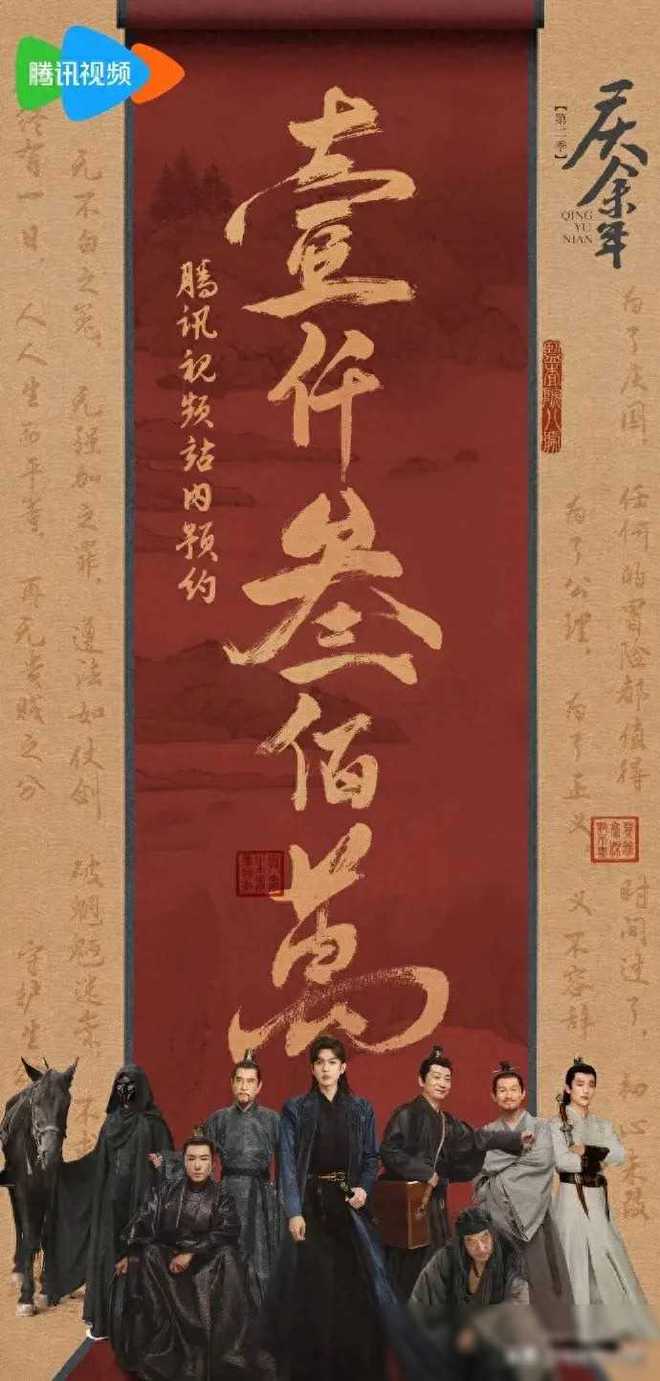 腾讯视频
庆余年
【第二季】
QING
YU
NIAN
壹仟叁佰萬
腾讯视频站内预约
为了庆国，任何的冒险都值得
时间过了，初心未改
为了公理，为了正义，义不容辞
无不白之冤，无强加之罪，遵法如仗剑
破魍魉迷祟，不求
终有一日，人人生而平等，再无贵贱之分
守护生